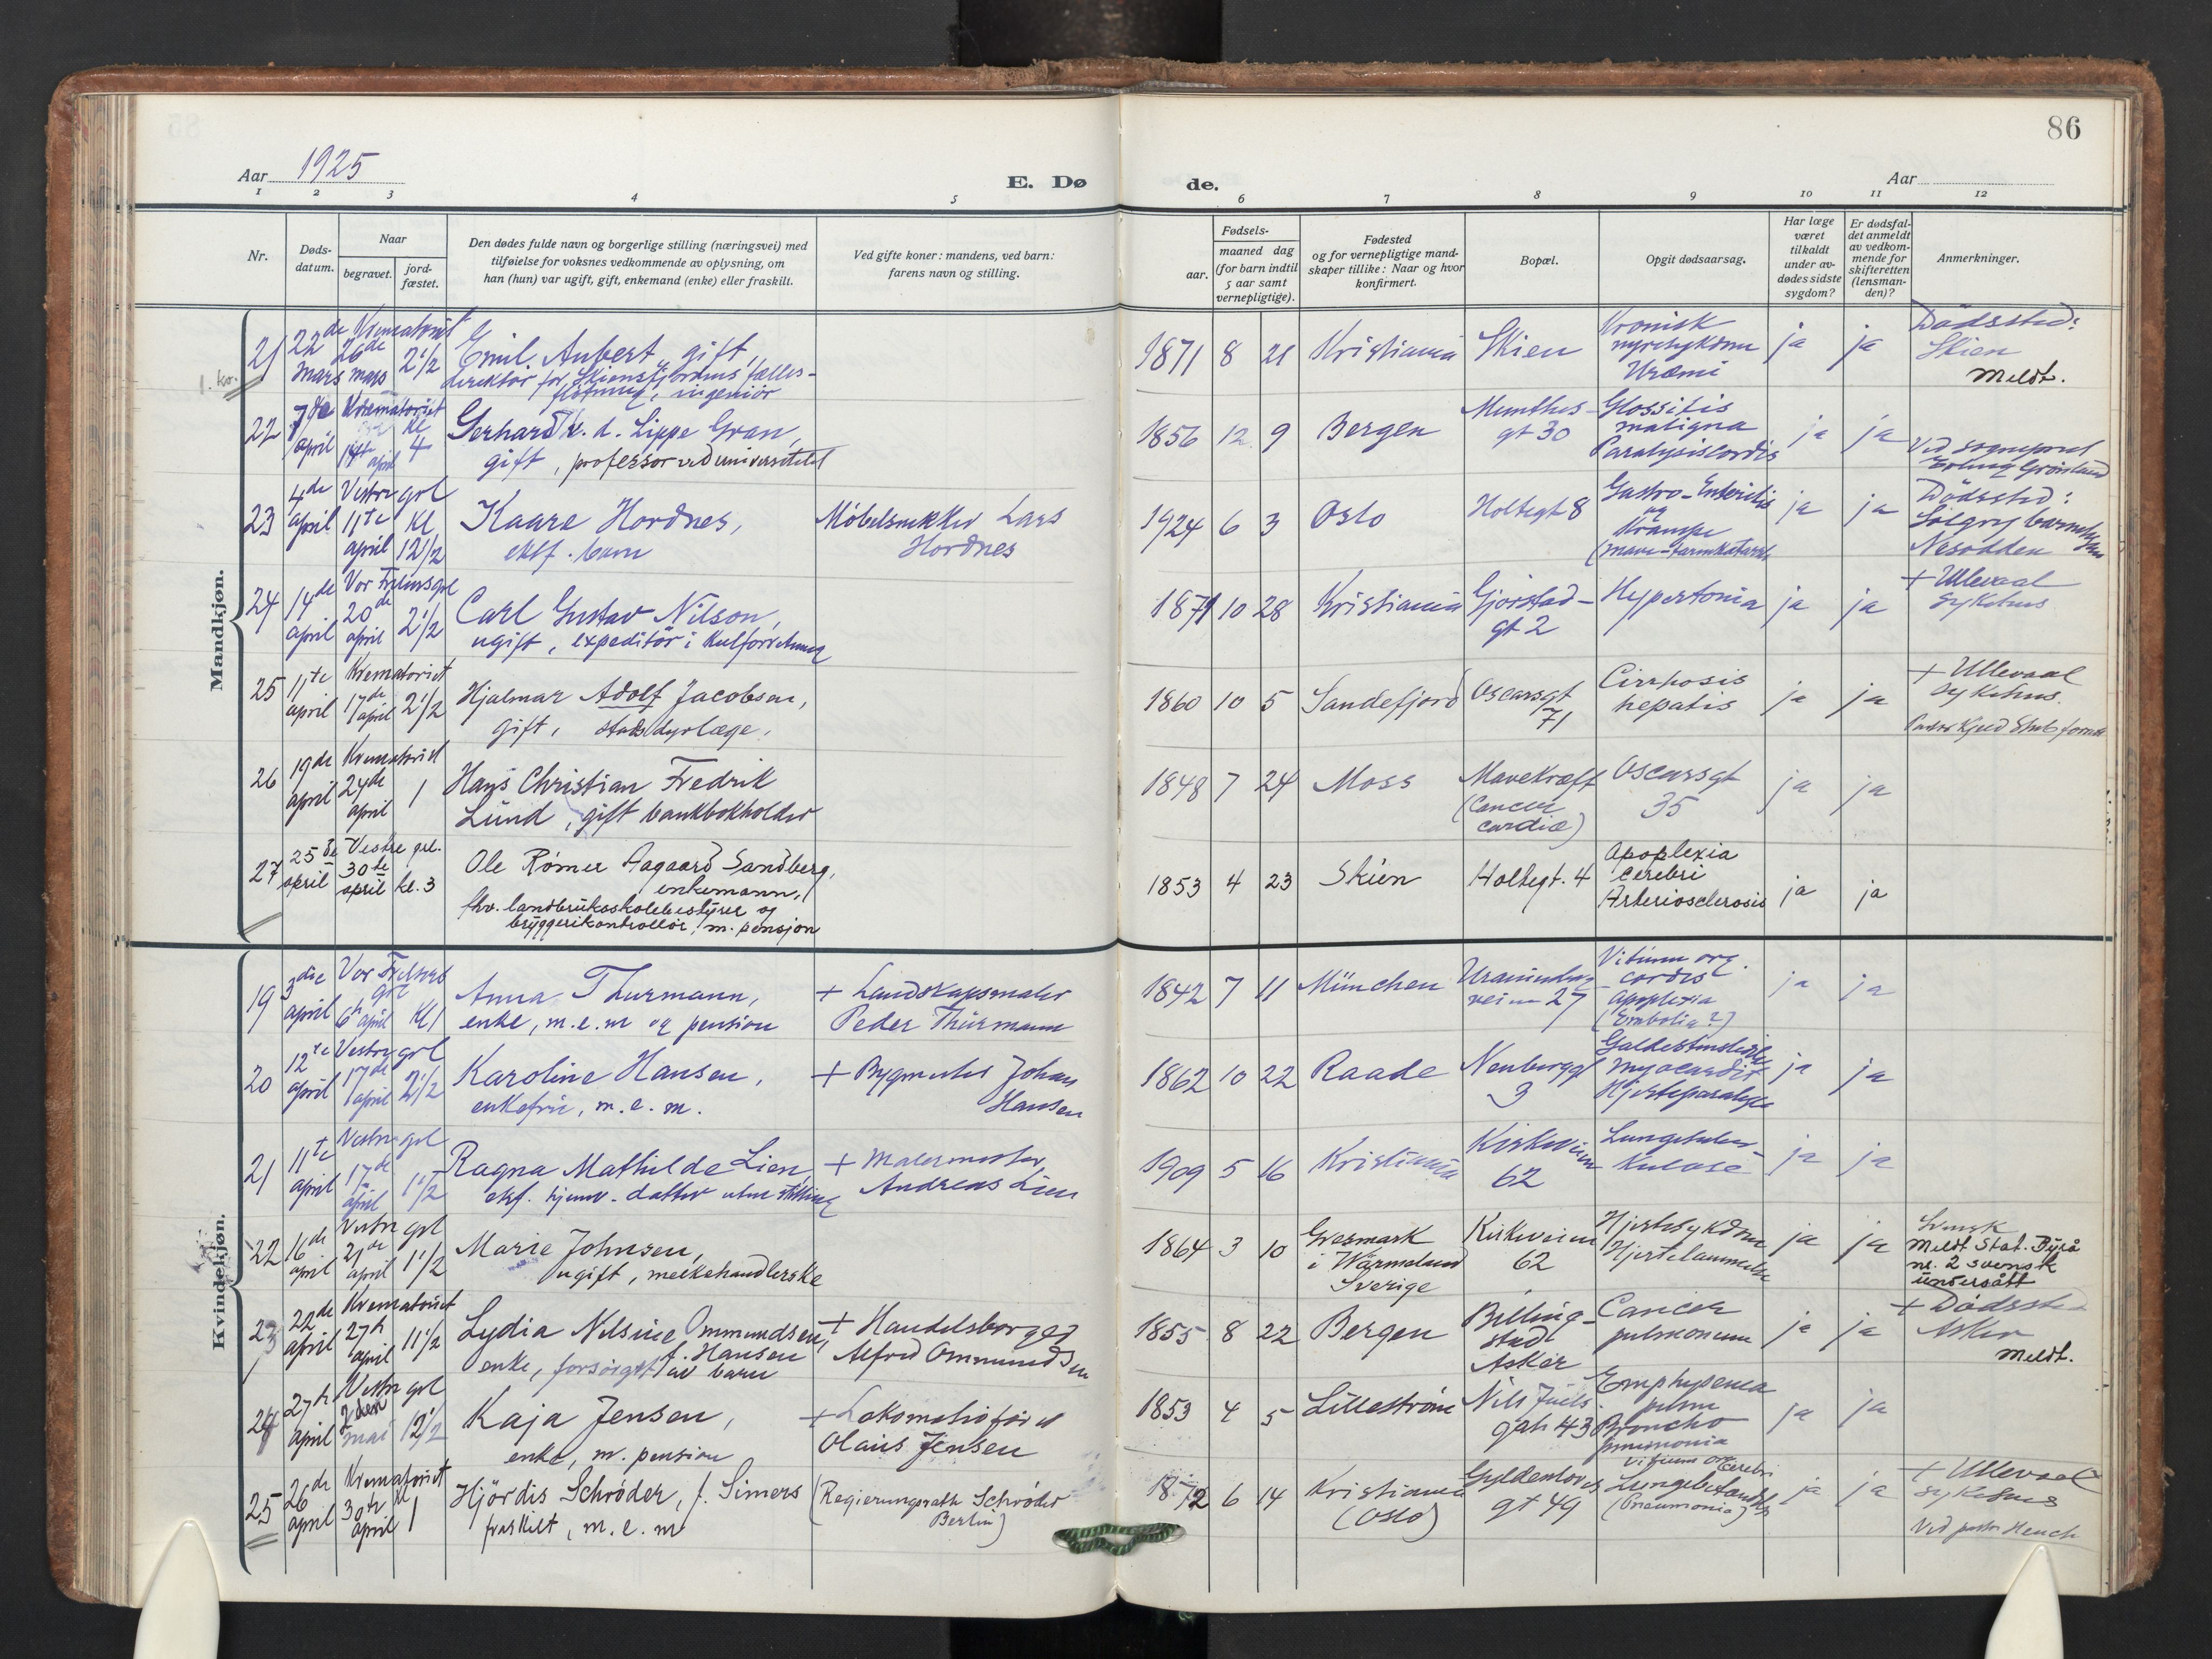 86
Aar 1925
E. Dø
de.
Aar
1 2 3 4 5 6 7 8 9 10 11 12
Nr.
Døds-
datum.
Naar
begravet.
jord-
fæstet.
Den dødes fulde navn og borgerlige stilling (næringsvei) med
tilføielse for voksnes vedkommende av oplysning, om
han (hun) var ugift, gift, enkemand (enke) eller fraskilt.
Ved gifte koner: mandens, ved barn:
farens navn og stilling.
Fødsels-
aar.
maaned dag
(for barn indtil
5 aar samt
vernepligtige).
Fødested
og for vernepligtige mand-
skaper tillike: Naar og hvor
konfirmert.
Bopæl.
Opgit dødsaarsag.
Har læge
været
tilkaldt
under av-
dødes sidste
sygdom?
Er dødsfal-
det anmeldt
av vedkom-
mende for
skifteretten
(lensman-
den)?
Anmerkninger.
Mandkjøn.
1. kv.
21
22de
mars
Krematoriet
26de
mars
2 1/2
Emil Aubert, gift
direktør for Skiensfjordens fælles-
fløtning, ingeniør
1871 8 21
Kristiania
Skien
Kronisk
nyresykdom
Uræmi
ja
ja
Dødssted:
Skien
Meldt.
22
7de
april
Krematoriet
14de april
kl
4
Gerhard v. d. Lippe Gran,
gift, professor ved universitetet
1856 12 9
Bergen
Munthes
gt 30
Glossitis
maligna
Paralysis cordis
ja
ja
Ved sogneprest
Grønland
23
4de
april
Vestre grl
11te
april
kl
12 1/2
Kaare Hordnes,
ekt. barn
Møbelsnekker Lars
Hordnes
1924 6 3
Oslo
Holtegt 8
Gastro-Enteritis
og
Krampe
(mave-tarmkatarrh
ja
ja
Dødssted:
Solgry barnehjem
Nesodden
24
14de
april
Vor Frelsers grl
20de
april
2 1/2
Carl Gustav Nilson,
ugift, expeditør i kulforretning
1871 10 28
Kristiania
Gjørstad-
gt 2
Hypertonia
ja
ja
+ Ullevaal
sykehus
25
11te
april
Krematoriet
17de
april
2 1/2
Hjalmar Adolf Jacobsen,
gift, stadsdyrlæge.
1860 10 5
Sandefjord
Oscarsgt
71
Cirrhosis
hepatis
ja
ja
+ Ullevaal
sykehus.
Pastor Kjeld Stub forrett
26
19de
april
Krematoriet
24de
april
1
Hans Christian Fredrik
Lund, gift bankbokholder
1848 7 24
Moss
Mavekræft
(Cancer
cardiæ)
Oscarsgt
35
ja
ja
27
25de
april
Vestre grl.
30te
april
kl. 3
Ole Rømer Aagaard Sandberg,
enkemann,
fhv. landbruksskolebestyrer og
bryggerikontrollør, m. pensjon
1853 4 23
Skien
Holtegt. 4
Apoplexia
cerebri
Arteriosclerosis
ja
ja
Kvindekjøn.
19
3die
april
Vor Frelsers
grl
6te april
Kl 1
Anna Thurmann,
enke, m. e. m og pension
+ Landskapsmaler
Peder Thurmann
1842 7 11
München
Uranienborg
veien 27
Vitium org.
cordis
Apoplexia
(Embolia?)
ja
ja
20
12te
april
Vestre grl
17de
april
2 1/2
Karoline Hansen,
enkefru, m. e. m.
+ Bygmester Johan
Hansen
1862 10 22
Raade
Neuberggt
3
Galdestenslidelse
Myocardit
Hjerteparalyse
ja
ja
21
11te
april
Vestre grl
17de
april
1 1/2
Ragna Mathilde Lien,
ekt. hjemv. datter uten stilling
+ Malermester
Andreas Lien
1909 5 16
Kristiania
Kirkeveien
62
Lungetuber-
kulose
ja
ja
22
16de
april
Vestre grl
21de
april
1 1/2
Marie Johnsen,
ugift, melkehandlerske
1864 3 10
Gresmark
i Wärmeland
Sverige
Kirkeveien
62
Hjertesykdom
Hjertelammelse
ja
ja
Svensk
Meldt Stat. Byrå
nr. 2 svensk
undersått
23
22de
april
Krematoriet
27de
april
11 1/2
Lydia Nelsine Ommundsen,
f. Hansen
enke, forsørget av barn
+ Handelsborger
Alfred Ommundsen
1855 8 22
Bergen
Billing-
stad
Asker
Cancer
pulmonum
ja
ja
+ Dødssted
Asker
Meldt.
24
27de
april
Vestre grl
2den
mai
12 1/2
Kaja Jensen,
enke, m. pension
+ Lokomotivfører
Olaus Jensen
1853 4 5
Lillestrøm
Nils Juels
gate 43
Emphysema
pulm
Broncho
pneumonia
ja
ja
25
26de
april
Krematoriet
30te
april
kl
1
Hjørdis Schrøder, f. Simers
fraskilt, m. e. m
(Regierungsrath Schrøder
Berlin)
1872 6 14
Kristiania
(Oslo)
Gyldenløves
gt 49
Vitium cerebri
Lungebetændelse
(Pneumonia)
ja
ja
+ Ullevaal
sykehus
Ved pastor Heuch